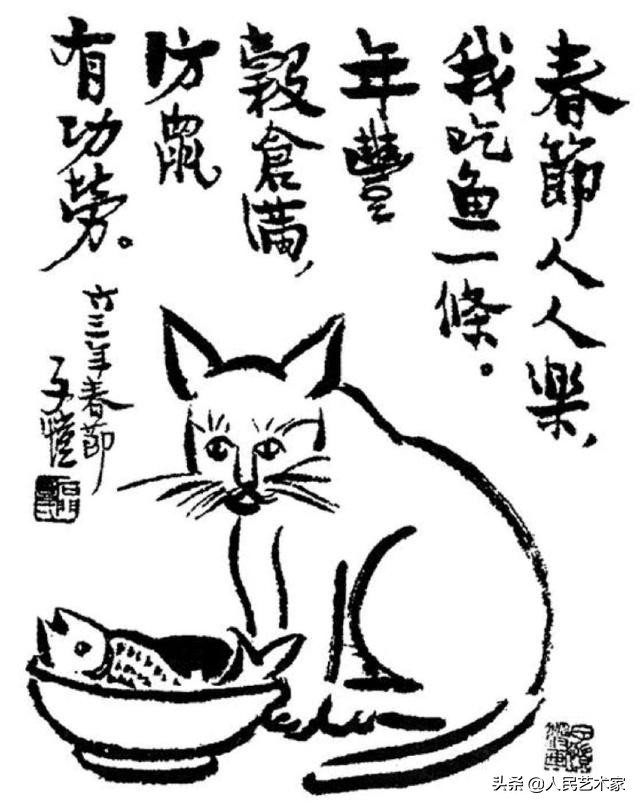 春節人人樂，
我吃鱼一條。
年豐
穀倉滿，
防鼠
有功勞。
六三年春節
子愷
头条 @人民艺术家